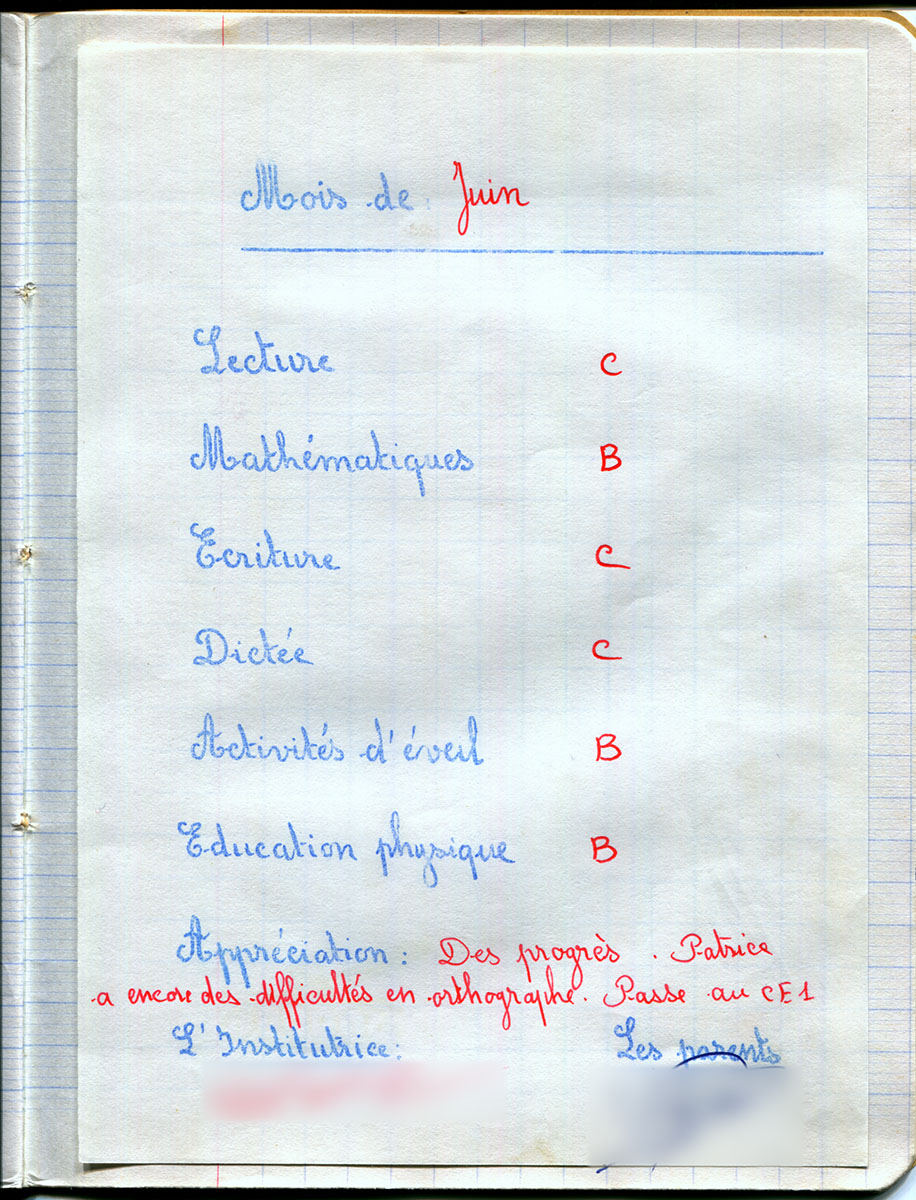 Mois de : Juin
Lecture C
Mathématiques B
Ecriture C
Dictée C
Activités d'éveil B
Education physique B
Appréciation : Des progrès . Patrice
a encore des difficultés en orthographe. Passe au CE1
L'Institutrice : Les parents